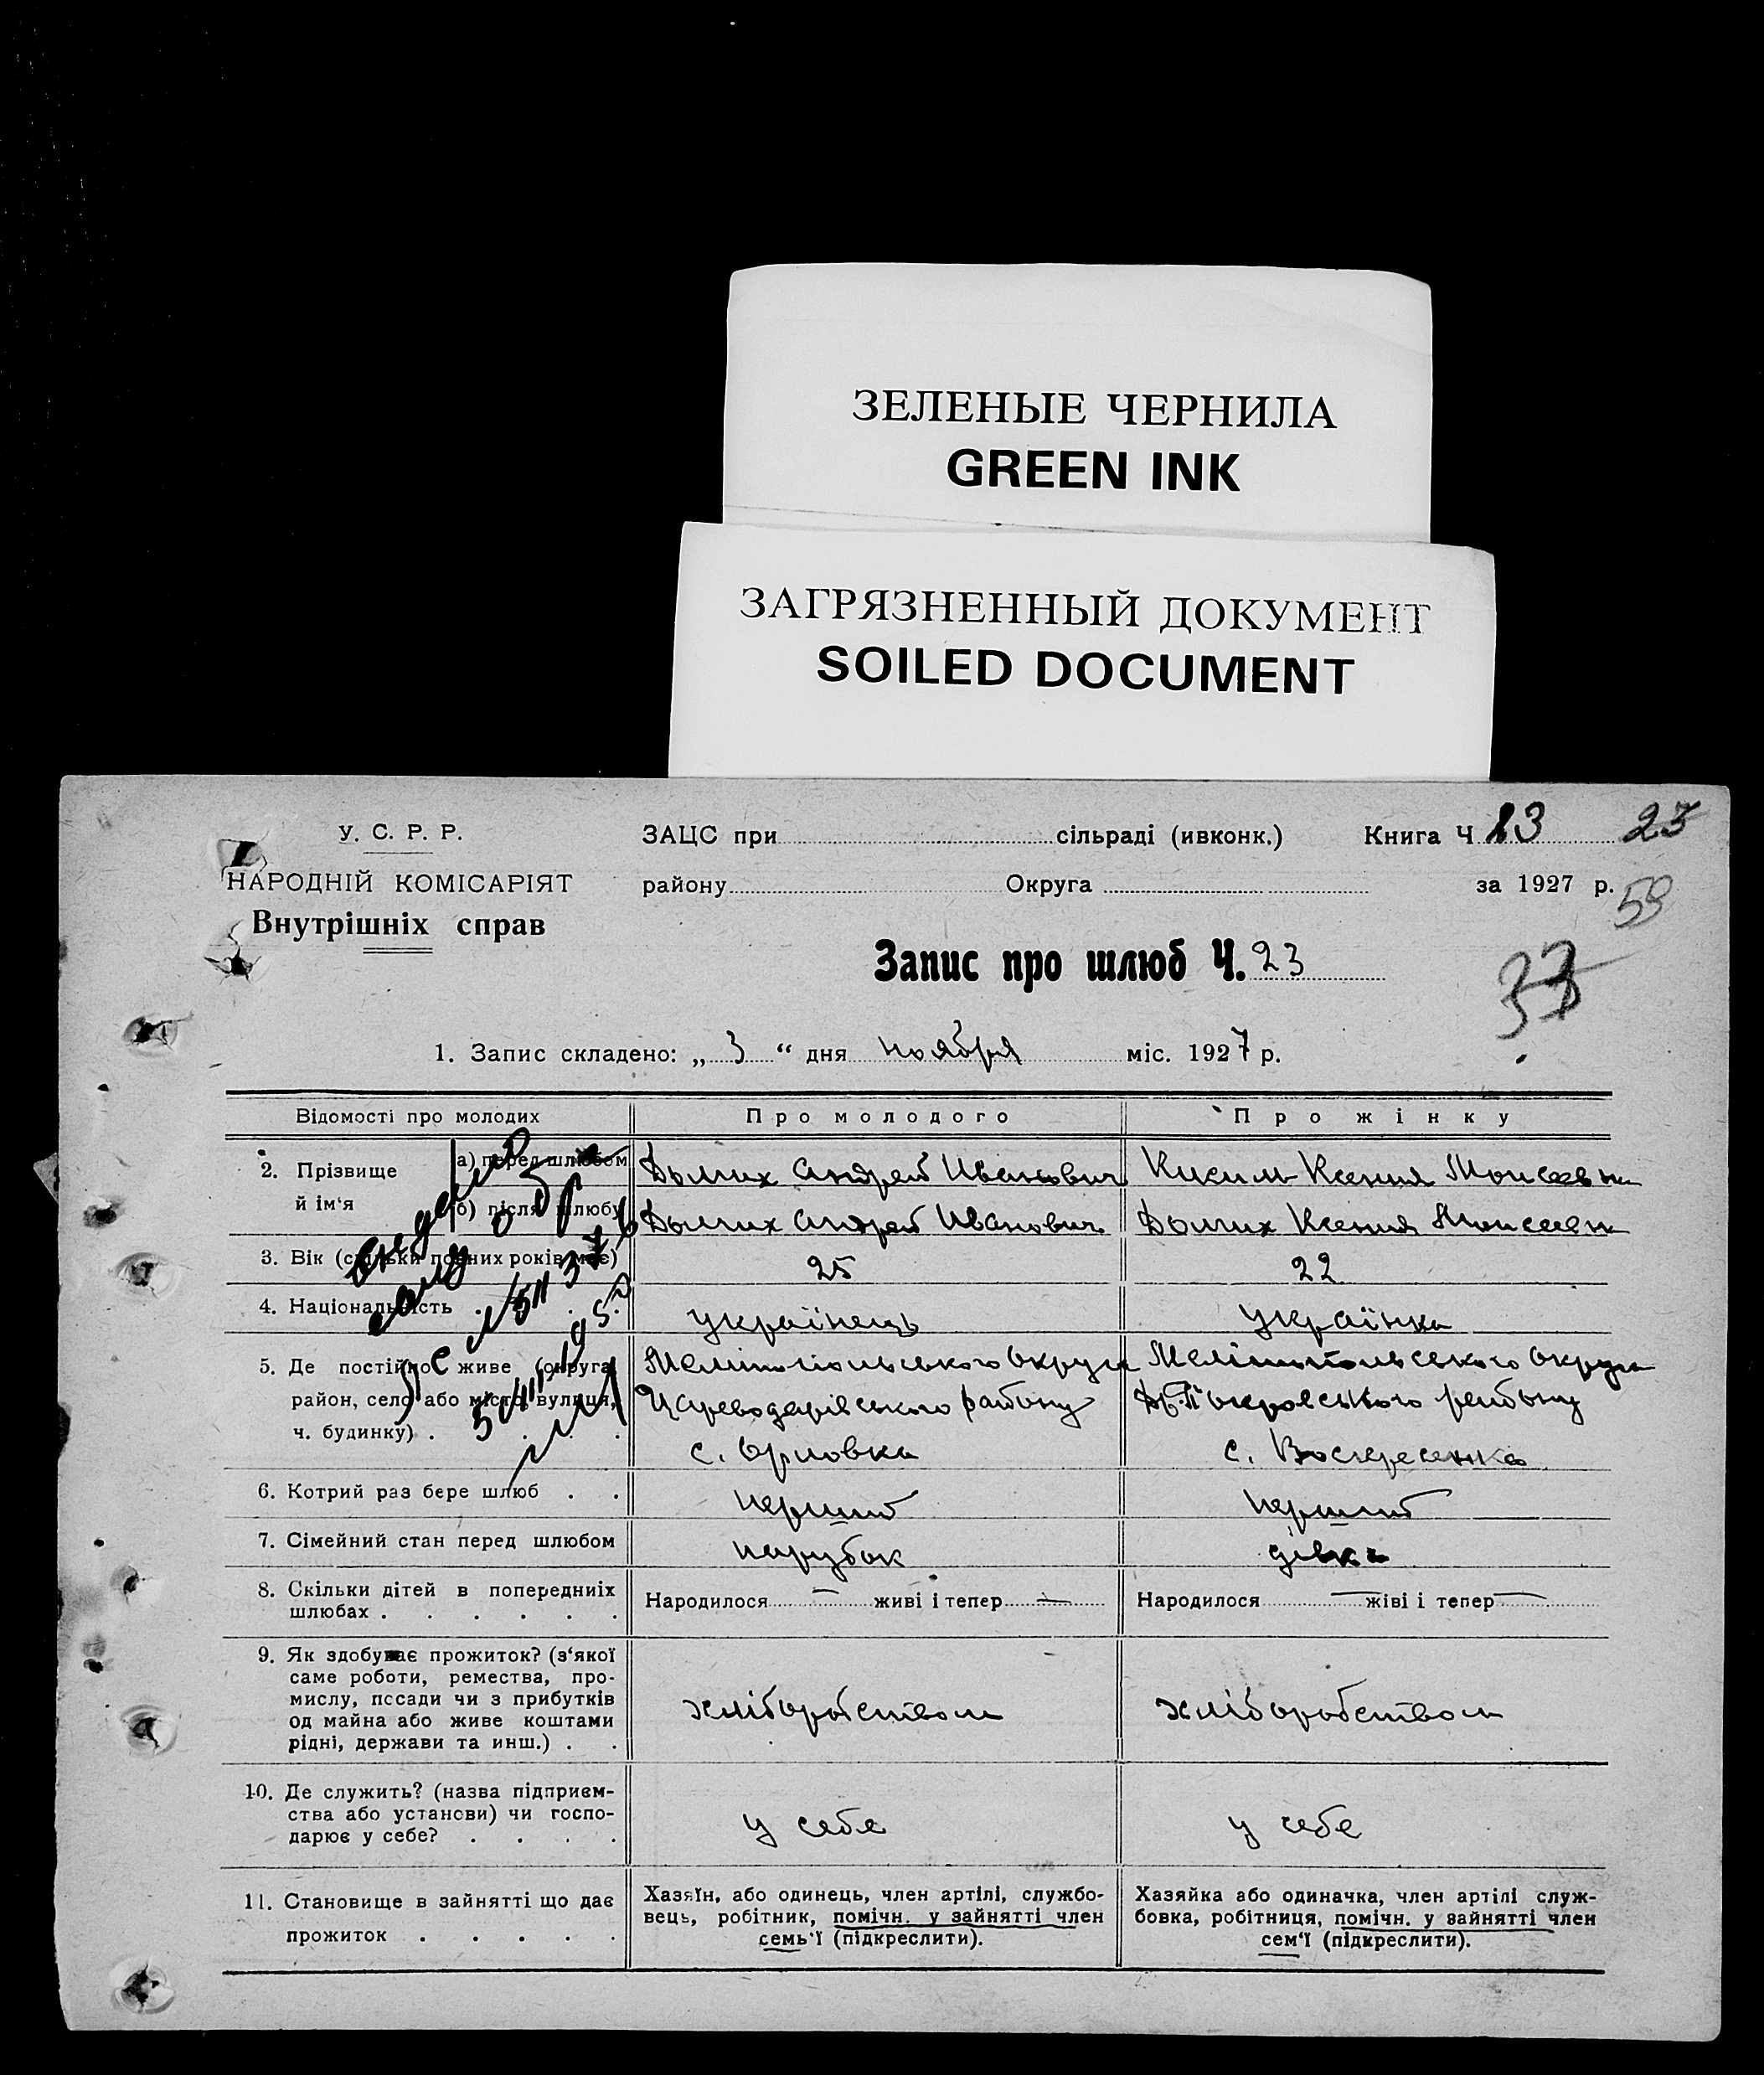 ЗЕЛЕНЫЕ ЧЕРНИЛА
GREEN INK
ЗАГРЯЗНЕННЫЙ ДОКУМЕНТ
SOILED DOCUMENT
У. С. Р. Р.
НАРОДНІЙ КОМІСАРІЯТ
Внутрішніх справ
ЗАЦС при сільраді (ивконк.) Книга Ч 23
району Округа за 1927 р.
59
Запис про шлюб Ч. 23
33
1. Запис складено: „ 3 “ дня ноября міс. 1927 р.
Відомості про молодих Про молодого Про жінку
2. Прізвище й ім‘я
а) перед шлюбом Андрей Иванович Ксения Моисеевна
б) після шлюбу Андрей Иванович Ксения Моисеевн
3. Вік (скільки повних років має) 25 22
4. Національність . . . українець українка
5. Де постійно живе (округа, район, село або місто, вулиця, ч. будинку) .
Мелітопольського Округи Мелітопольського Округи
Цареводарівського району Покровського району
с. Орловка с. Воскресенка
6. Котрий раз бере шлюб . . перший перший
7. Сімейний стан перед шлюбом парубок дівка
8. Скільки дітей в попередниіх
шлюбах . . . . . .
Народилося — живі і тепер — Народилося — жіві і тепер —
9. Як здобуває прожиток? (з‘якої
саме роботи, ремества, про-
мислу, посади чи з прибутків
од майна або живе коштами
рідні, держави та инш.) . .
хліборобством хліборобством
10. Де служить? (назва підприєм-
ства або установи) чи госпо-
дарює у себе? . . . .
у себе у себе
11. Становище в зайнятті що дає
прожиток . . . . .
Хазяїн, або одинець, член артілі, службо-
вець, робітник, помічн. у зайнятті член
семь‘ї (підкреслити).
Хазяйка або одиначка, член артілі служ-
бовка, робітниця, помічн. у зайнятті член
сем‘ї (підкреслити).